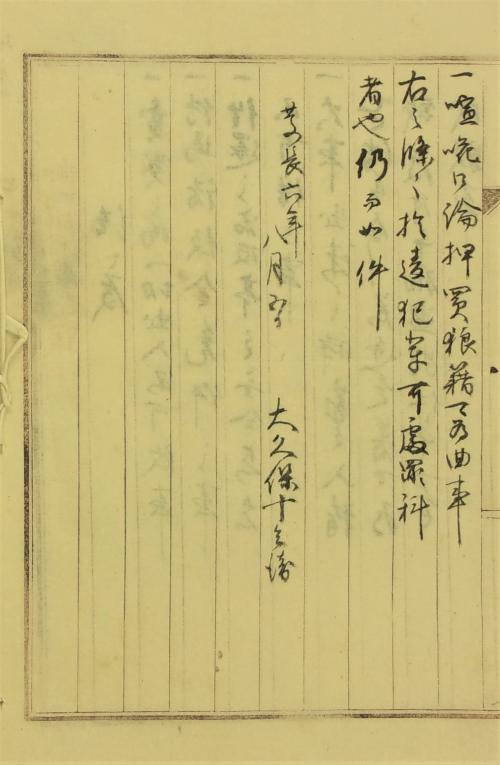 一喧嘩口論押買狼藉可為曲事
右之條々於違犯輩可處罪科
者也仍而如件
慶長六年八月
大久保十兵衛